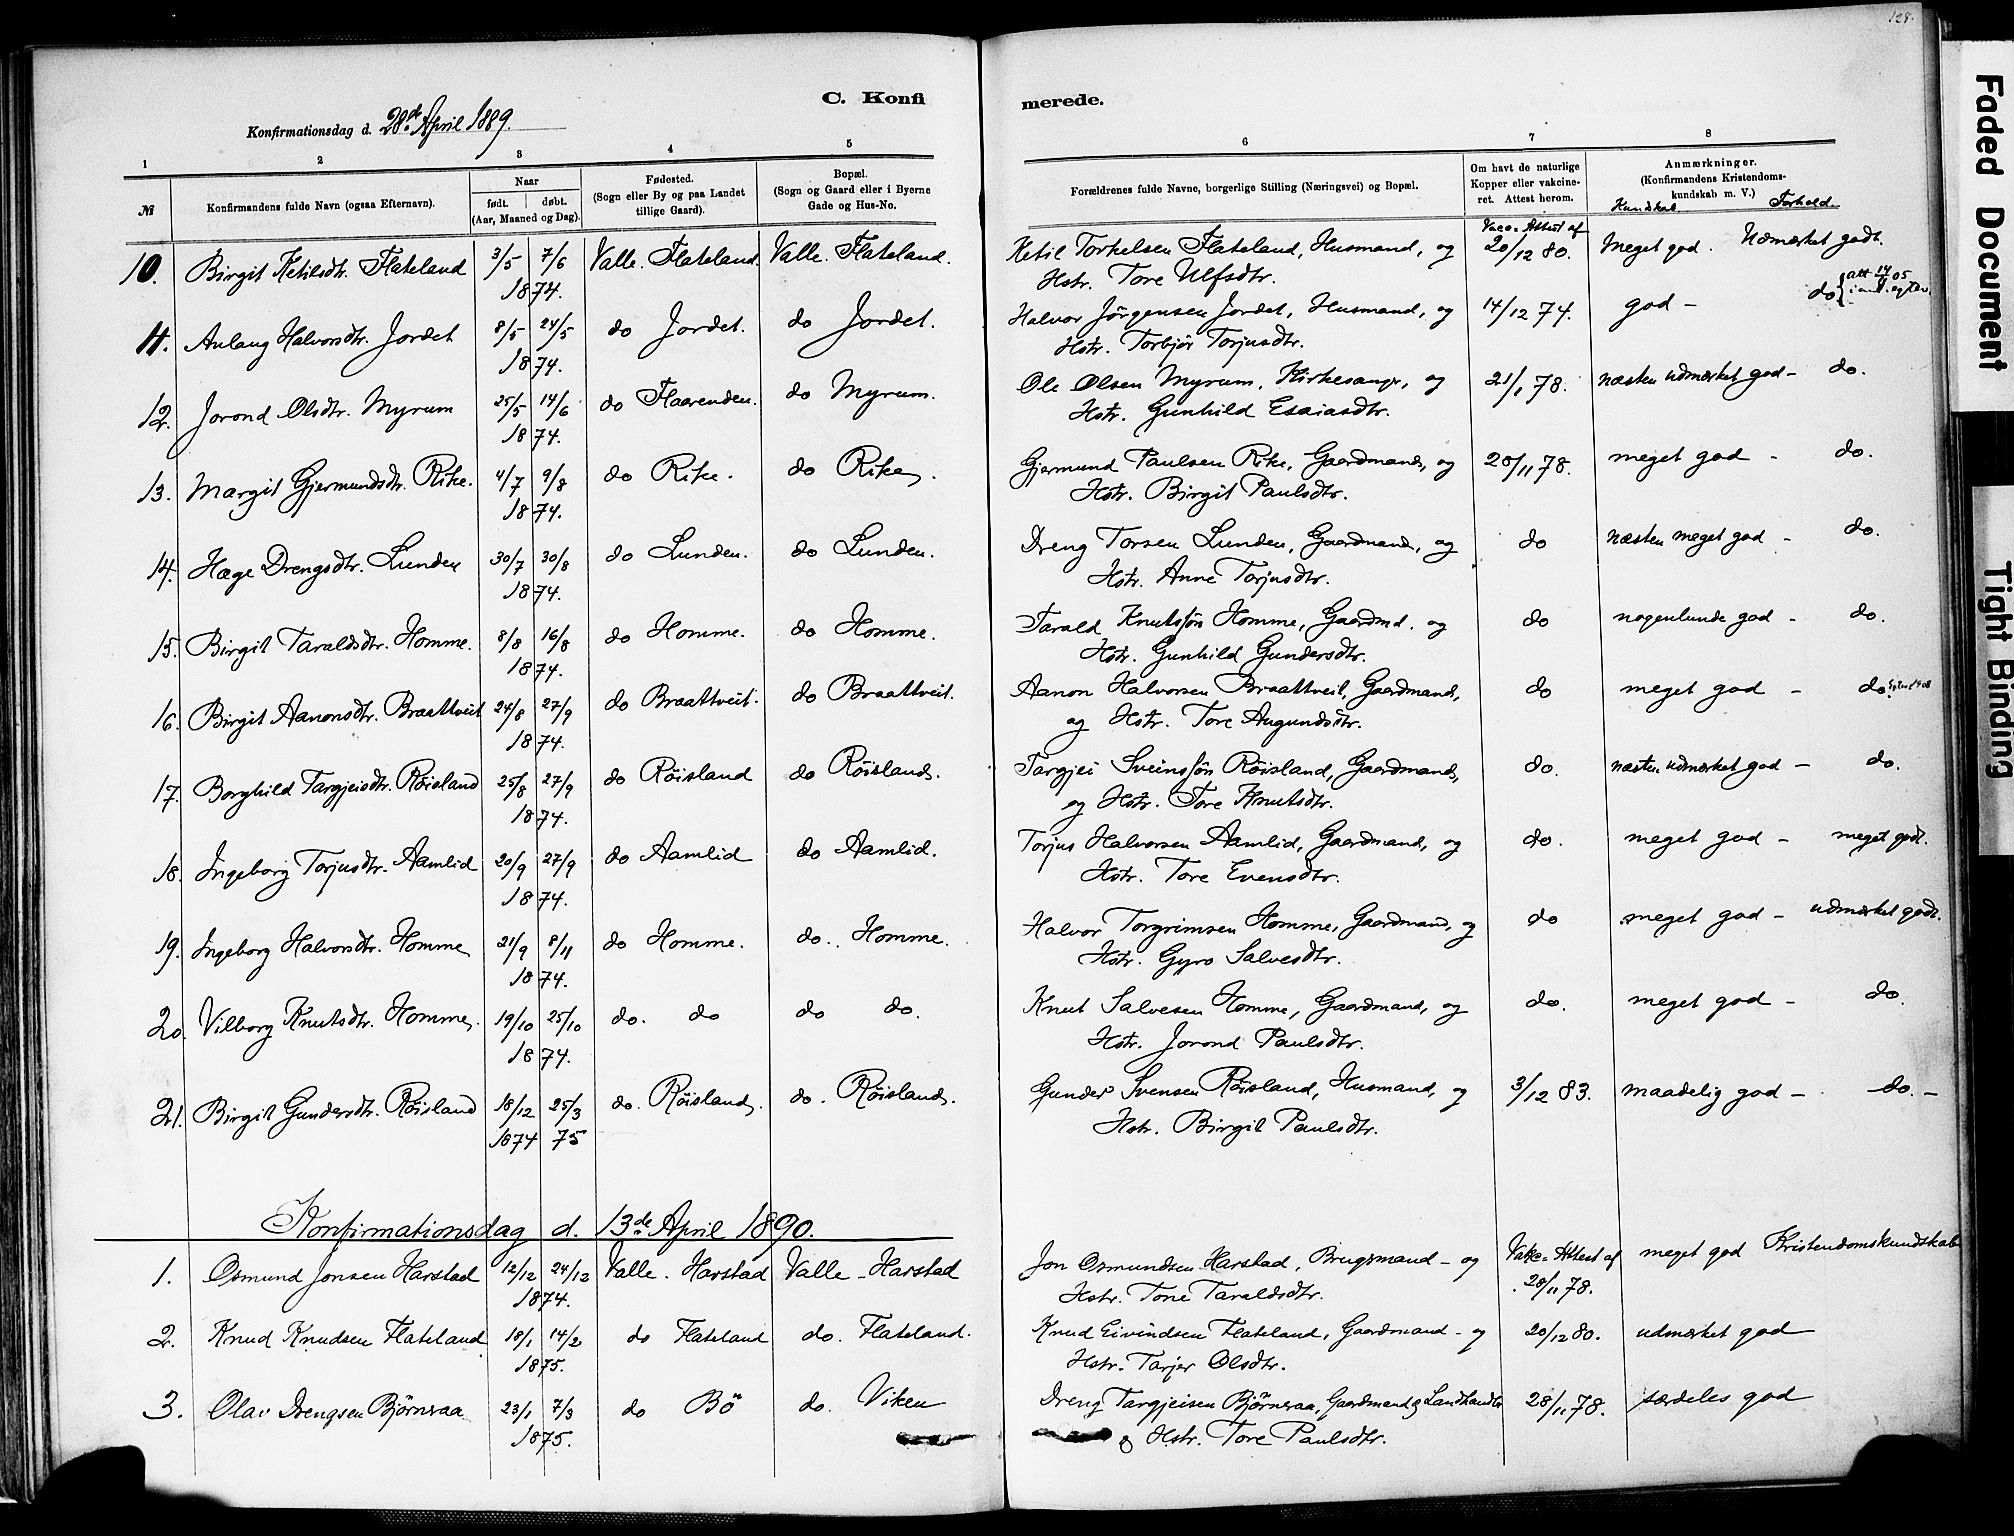 128.
C. Konfi
merede.
Konfirmationsdag d. 28de April 1889.
1 2 3 4 5 6 7 8
№ Konfirmandens fulde Navn (ogsaa Efternavn). Naar født. døbt. (Aar, Maaned og Dag). Fødested. (Sogn eller By og paa Landet tillige Gaard). Bopæl. (Sogn og Gaard eller i Byerne Gade og Hus-No. Forældrenes fulde Navne, borgerlige Stilling (Næringsvei) og Bopæl. Om havt de naturlige Kopper eller vakcineret. Attest herom. Anmærkninger. (Konfirmandens Kristendomskundskab m. V.) Kundskab Forhold.
10. Birgit Ketilsdtr. Flateland 3/5 7/6 Valle. Flateland. Valle. Flateland. Ketil Torkelsen Flateland, Husmand, og Vacc. Attest af 20/12 80. Meget god. Udmærket godt.
1874. Hstr. Tore Ulfsdtr.
11. Aulaug Halvorsdtr. Jordet 8/5 24/5 do Jordet. do Jordet. Halvor Jörgensen Jordet, Husmand, og 14/12 74. god - do
1874. Hstr. Torbjör Torjusdtr.
12. Jorond Olsdtr. Myrum 25/5 14/6 do Flaarenden. do Myrum. Ole Olsen Myrum, Kirkesanger, og 21/1 78. næsten udmærket god - do.
1874. Hstr. Gunhild Esaiasdtr.
13. Margit Gjermundsdtr. Rike. 4/7 9/8 do Rike. do Rike. Gjermund Paulsen Rike, Gaardmand, og 28/11 78. meget god - do.
1874. Hstr. Birgit Paulsdtr.
14. Hæge Drengsdtr. Lunden 30/7 30/8 do Lunden. do Lunden. Dreng Torsen Lunden, Gaardmand, og do næsten meget god - do.
1874. Hstr. Anne Torjusdtr.
15. Birgit Taraldsdtr. Homme. 8/8 16/8 do Homme. do Homme. Tarald Knutsſön Homme, Gaardmd. og do nogenlunde god - do.
1874. Hstr. Gunhild Gundersdtr.
16. Birgit Aanonsdtr. Braattveit 24/8 27/9 do Braattveit. do Braattveit. Aanon Halvorsen Braattveit, Gaardmand, do meget god - do.
1874. og Hstr. Tore Augundsdtr.
17. Borghild Targjeisdtr. Röisland 25/8 27/9 do Röisland do Röisland. Targjei Sveinsſön Röisland, Gaardmand, do. næsten udmærket god - do.
1874. og Hstr. Tore Knutsdtr.
18. Ingeborg Torjusdtr. Aamlid 20/9 27/9 do Aamlid do Aamlid. Torjus Halvorsen Aamlid, Gaardmand, og do. meget god - meget godt.
1874. Hstr. Tore Evensdtr.
19. Ingeborg Halvorsdtr. Homme 21/9 8/11 do Homme. do. Homme. Halvor Torgrimsen Homme, Gaardmand, og do meget god - udmærket godt.
1874. Hstr. Gyro Salvesdtr.
20. Vilborg Knutsdtr. Homme. 19/10 25/10 do. do do do. Knut Salvesen Homme, Gaardmand, og do. meget god - do.
1874. Hstr. Jorond Paulsdtr.
21. Birgit Gundersdtr. Röisland 18/12 25/3 do. Röisland. do. Röisland. Gunder Svensen Röisland, Husmand, og 3/12 83. maadelig god - do. -
1874 75 Hstr. Birgit Paulsdtr.
Konfirmationsdag d. 13de April 1890.
1. Osmund Jonsen Harstad 12/12 24/12 Valle. Harstad Valle - Harstad Jon Osmundsen Harstad, Brugsmand - og Vakc. Attest af meget god Kristendomskundskab
1874. Hstr. Tone Taraldsdtr. 28/11 78.
2. Knud Knudsen Flateland 18/1 14/2 do Flateland do. Flateland. Knud Eivindsen Flateland, Gaardmand - og 20/12 80. udmærket god
1875. Hstr. Tarjer Olsdtr.
3. Olav Drengsen Björnsaa 23/1 7/3 do Bö do. Viken Dreng Targjeisen Björnsaa, Gaardmand & Landhandler 28/11 78. særdeles god
1875. & Hstr. Tore Paulsdtr.
Faded Document
Tight Binding